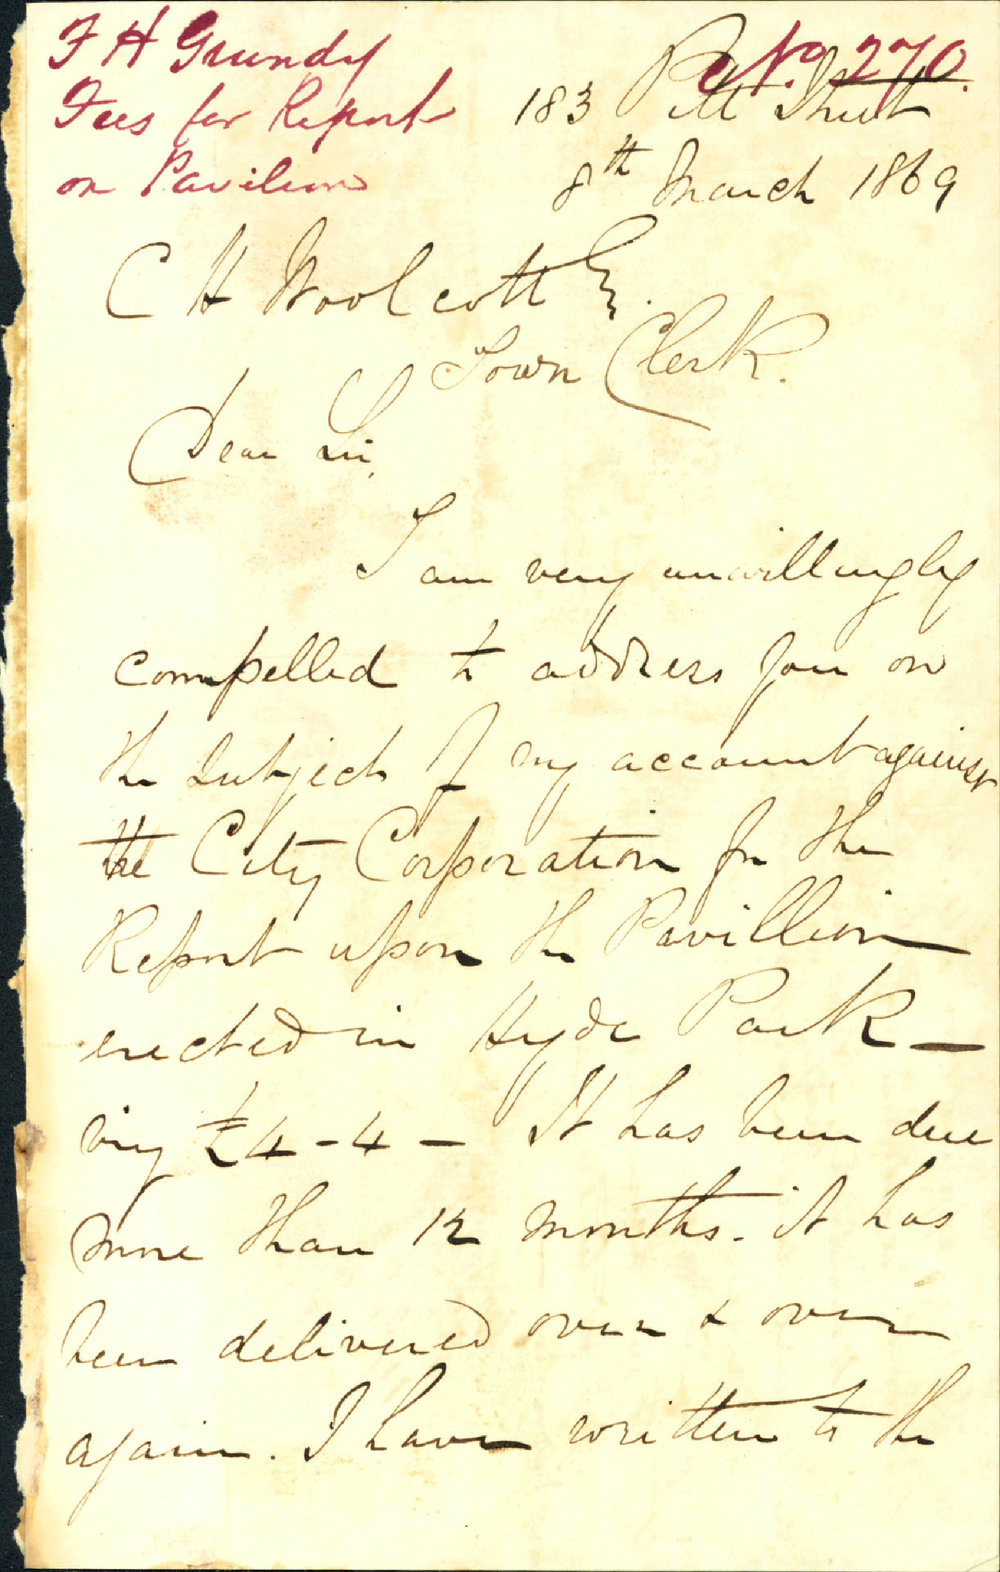 F H Grundy
Fees for Report
on Pavilion
No. 270.
183 Pitt Street
8th March 1869
C H Woolcott Esq.
Town Clerk.
Dear Sir,
I am very unwillingly
compelled to address you on
the subject of my account against
the City Corporation for the
Report upon the Pavillion
erected in Hyde Park —
viz £4-4- It has been due
more than 12 months. it has
been delivered over & over
again. I have written to the